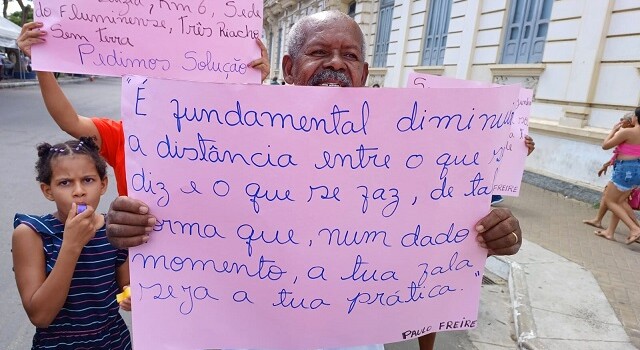 Km 6, Sede
do Fluminense, Três Riacho.
Sem terra
Pedimos Solução
"É fundamental diminuir
a distância entre o que se
diz e o que se faz, de tal
forma que, num dado
momento, a tua fala
seja a tua prática."
PAULO FREIRE
FREIRE